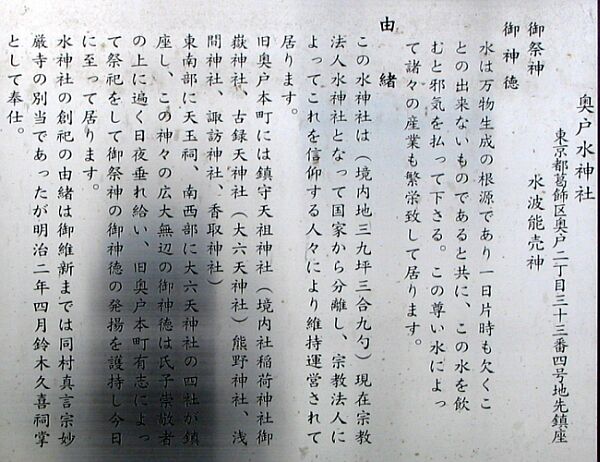 奥戸水神社
東京都葛飾区奥戸二丁目三十三番四号地先鎮座
御祭神　水波能売神
御神徳
水は万物生成の根源であり一日片時も欠くこ
との出来ないものであると共に、この水を飲
むと邪気を払って下さる。この尊い水によっ
て諸々の産業も繁栄致して居ります。
由緒
この水神社は（境内地三九坪三合九勺）現在宗教
法人水神社となって国家から分離し、宗教法人に
よってこれを信仰する人々により維持運営されて
居ります。
旧奥戸本町には鎮守天祖神社（境内社稲荷神社御
嶽神社、古録天神社（大六天神社）熊野神社、浅
間神社、諏訪神社、香取神社）
東南部に天王祠、南西部に大六天神社の四社が鎮
座し、この神々の広大無辺の御神徳は氏子崇敬者
の上に遍く日夜垂れ給い、旧奥戸本町有志によっ
て祭祀をして御祭神の御神徳の発揚を護持し今日
に至って居ります。
水神社の創祀の由緒は御維新までは同村真言宗妙
厳寺の別当であったが明治二年四月鈴木久喜祠掌
として奉仕。